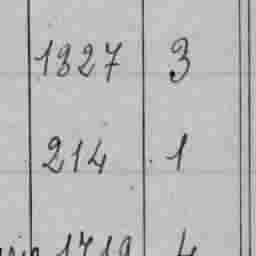 1327 3
214 1
1719 4